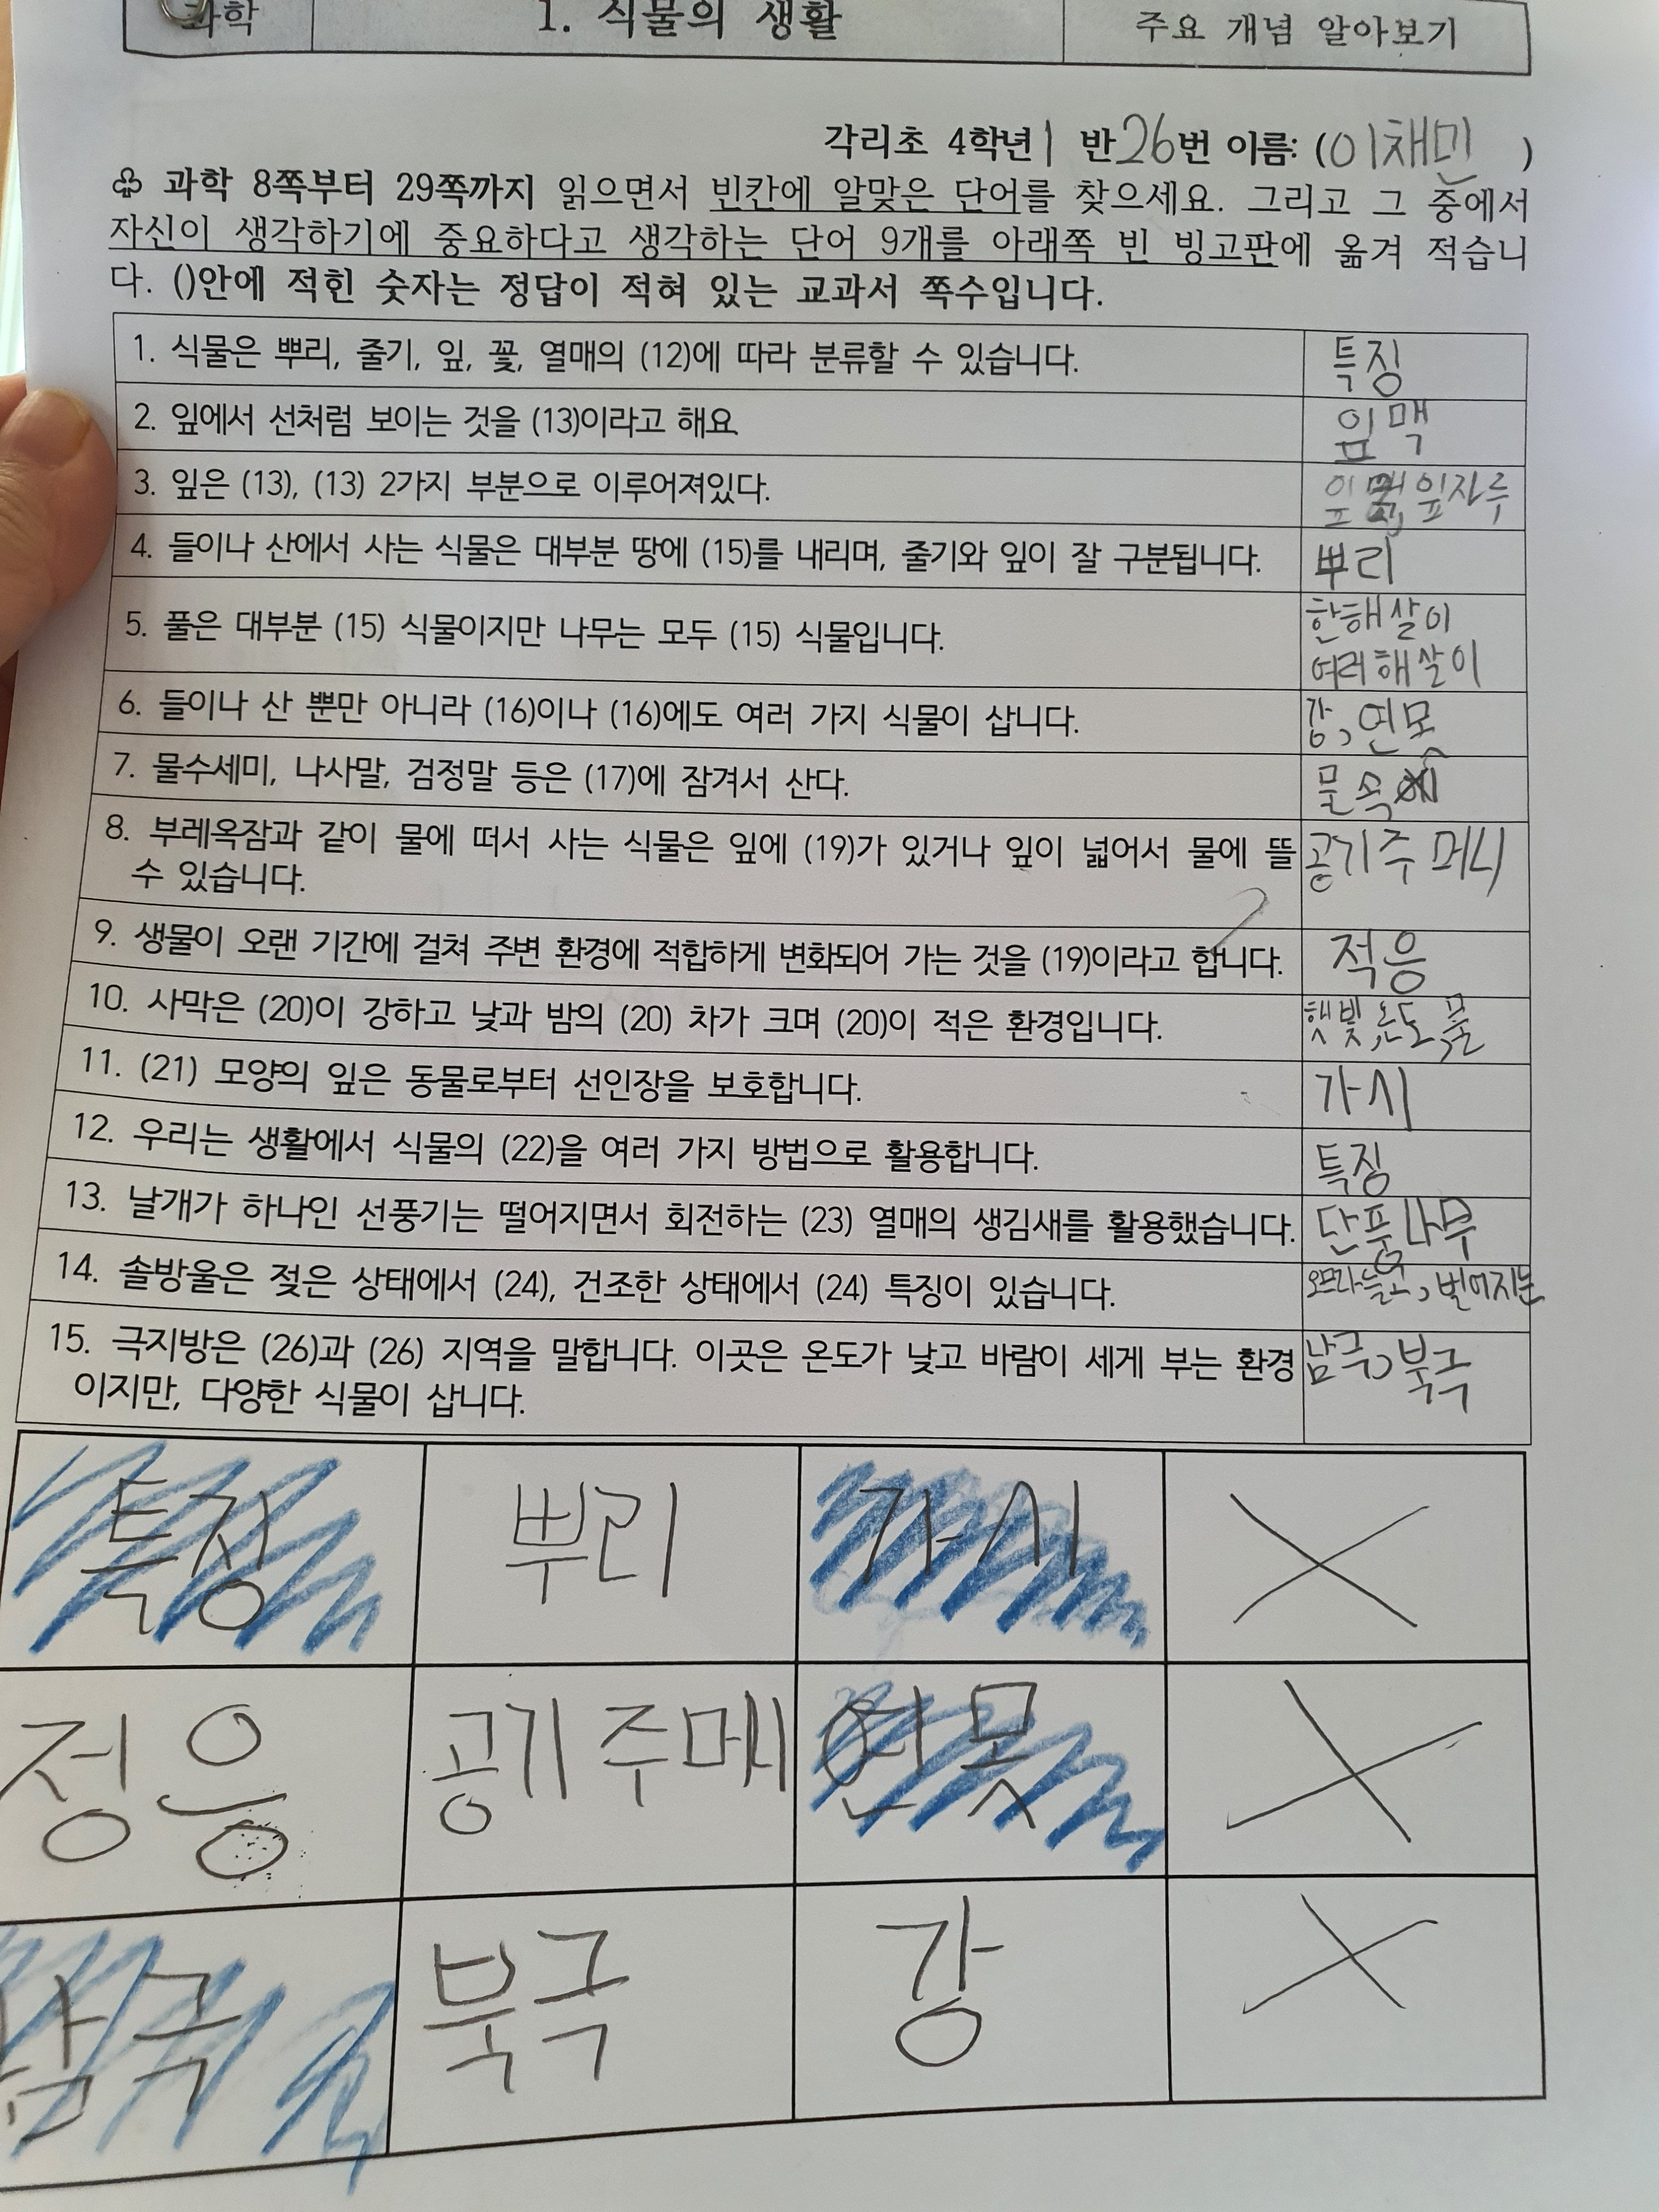 과학 1. 식물의 생활 주요 개념 알아보기
각리초 4학년 1 반 26번 이름: (이채민 )
♧ 과학 8쪽부터 29쪽까지 읽으면서 빈칸에 알맞은 단어를 찾으세요. 그리고 그 중에서
자신이 생각하기에 중요하다고 생각하는 단어 9개를 아래쪽 빈 빙고판에 옮겨 적습니
다. ()안에 적힌 숫자는 정답이 적혀 있는 교과서 쪽수입니다.
1. 식물은 뿌리, 줄기, 잎, 꽃, 열매의 (12)에 따라 분류할 수 있습니다. 특징
2. 잎에서 선처럼 보이는 것을 (13)이라고 해요. 잎맥
3. 잎은 (13), (13) 2가지 부분으로 이루어져있다. 잎자루
4. 들이나 산에서 사는 식물은 대부분 땅에 (15)를 내리며, 줄기와 잎이 잘 구분됩니다. 뿌리
5. 풀은 대부분 (15) 식물이지만 나무는 모두 (15) 식물입니다. 한해살이
여러해살이
6. 들이나 산 뿐만 아니라 (16)이나 (16)에도 여러 가지 식물이 삽니다. 강, 연못
7. 물수세미, 나사말, 검정말 등은 (17)에 잠겨서 산다. 물속
8. 부레옥잠과 같이 물에 떠서 사는 식물은 잎에 (19)가 있거나 잎이 넓어서 물에 뜰 공기주머니
수 있습니다.
9. 생물이 오랜 기간에 걸쳐 주변 환경에 적합하게 변화되어 가는 것을 (19)이라고 합니다. 적응
10. 사막은 (20)이 강하고 낮과 밤의 (20) 차가 크며 (20)이 적은 환경입니다. 햇빛, 온도, 물
11. (21) 모양의 잎은 동물로부터 선인장을 보호합니다. 가시
12. 우리는 생활에서 식물의 (22)을 여러 가지 방법으로 활용합니다. 특징
13. 날개가 하나인 선풍기는 떨어지면서 회전하는 (23) 열매의 생김새를 활용했습니다. 단풍나무
14. 솔방울은 젖은 상태에서 (24), 건조한 상태에서 (24) 특징이 있습니다. 오므라들고, 벌어지는
15. 극지방은 (26)과 (26) 지역을 말합니다. 이곳은 온도가 낮고 바람이 세게 부는 환경 남극, 북극
이지만, 다양한 식물이 삽니다.
특징 뿌리 가시
정응 공기주메니 연못
남극 북극 강